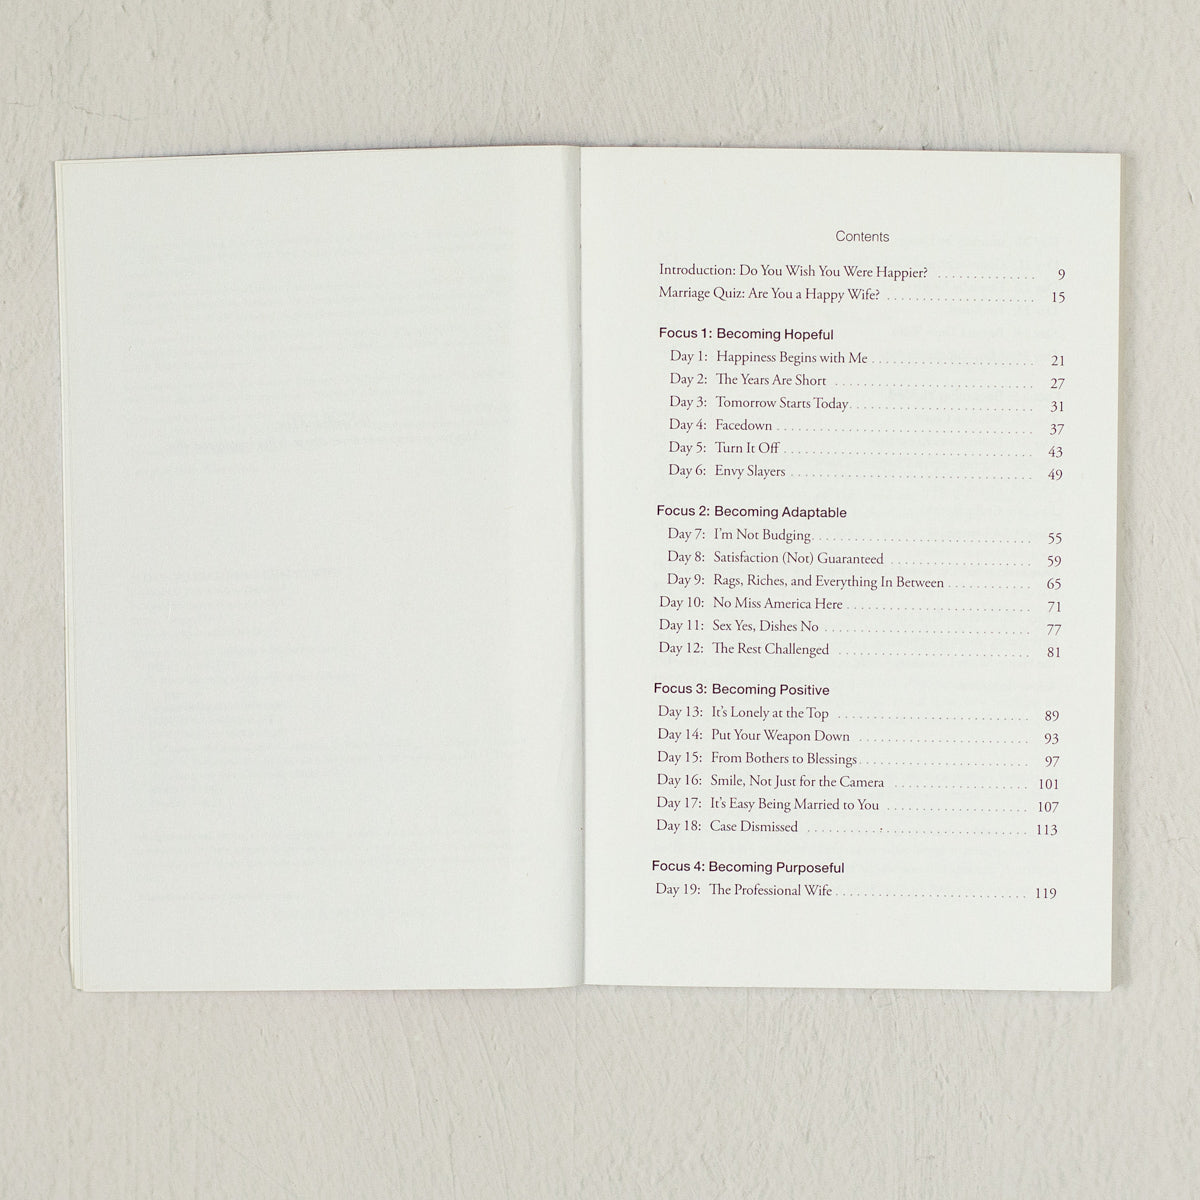 Contents
Introduction: Do You Wish You Were Happier? . . . . . . . . . . . . . . 9
Marriage Quiz: Are You a Happy Wife? . . . . . . . . . . . . . . . . . . . . . 15
Focus 1: Becoming Hopeful
Day 1: Happiness Begins with Me . . . . . . . . . . . . . . . . . . . . . . . 21
Day 2: The Years Are Short . . . . . . . . . . . . . . . . . . . . . . . . . . . . 27
Day 3: Tomorrow Starts Today. . . . . . . . . . . . . . . . . . . . . . . . . . 31
Day 4: Facedown . . . . . . . . . . . . . . . . . . . . . . . . . . . . . . . . . . . . 37
Day 5: Turn It Off . . . . . . . . . . . . . . . . . . . . . . . . . . . . . . . . . . . 43
Day 6: Envy Slayers . . . . . . . . . . . . . . . . . . . . . . . . . . . . . . . . . . 49
Focus 2: Becoming Adaptable
Day 7: I'm Not Budging. . . . . . . . . . . . . . . . . . . . . . . . . . . . . . . 55
Day 8: Satisfaction (Not) Guaranteed . . . . . . . . . . . . . . . . . . . . 59
Day 9: Rags, Riches, and Everything In Between . . . . . . . . . . . . 65
Day 10: No Miss America Here . . . . . . . . . . . . . . . . . . . . . . . . . . 71
Day 11: Sex Yes, Dishes No . . . . . . . . . . . . . . . . . . . . . . . . . . . . . 77
Day 12: The Rest Challenged . . . . . . . . . . . . . . . . . . . . . . . . . . . 81
Focus 3: Becoming Positive
Day 13: It's Lonely at the Top . . . . . . . . . . . . . . . . . . . . . . . . . . . 89
Day 14: Put Your Weapon Down . . . . . . . . . . . . . . . . . . . . . . . . 93
Day 15: From Bothers to Blessings . . . . . . . . . . . . . . . . . . . . . . . . 97
Day 16: Smile, Not Just for the Camera . . . . . . . . . . . . . . . . . . . 101
Day 17: It's Easy Being Married to You . . . . . . . . . . . . . . . . . . . . 107
Day 18: Case Dismissed . . . . . . . . . . . . . . . . . . . . . . . . . . . . . . . 113
Focus 4: Becoming Purposeful
Day 19: The Professional Wife . . . . . . . . . . . . . . . . . . . . . . . . . . . 119